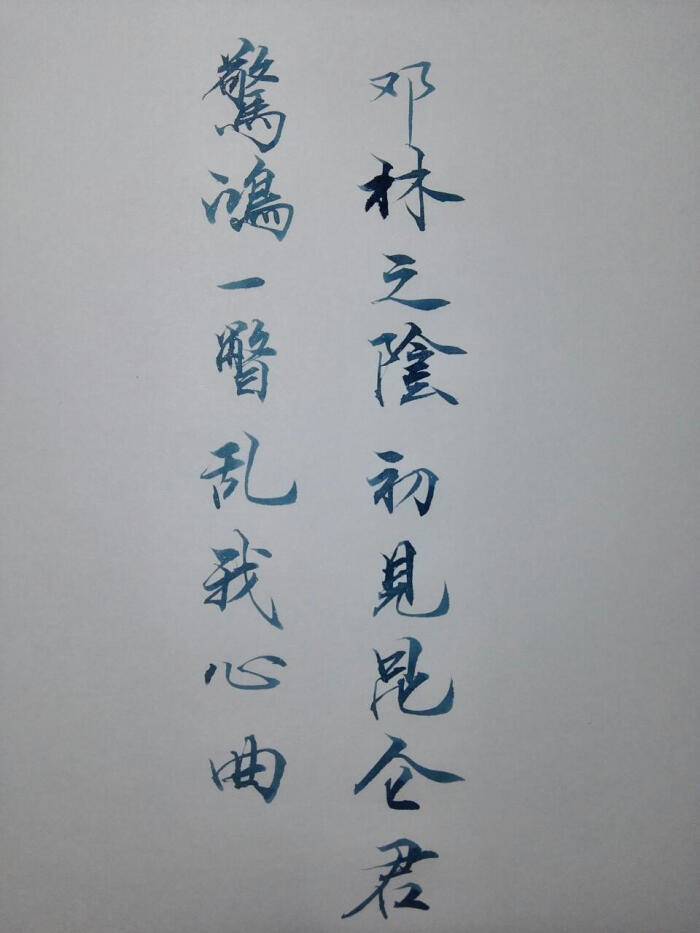 邓林之陰初見昆仑君
驚鴻一瞥乱我心曲